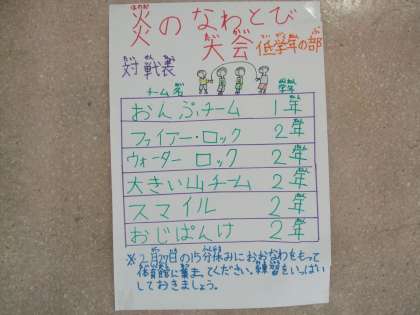 炎のなわとび
大会 低学年の部
対戦表
チーム名 学年
おんぷチーム 1年
ファイアー・ロック 2年
ウォーターロック 2年
大きい山チーム 2年
スマイル 2年
おじぱんけ 2年
※2月27日の15分休みにおおなわをもって
体育館に集まってください。練習をいっぱい
しておきましょう。